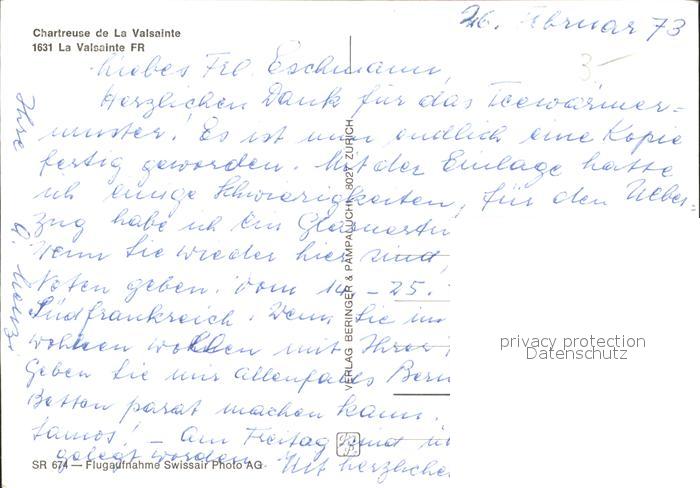 Chartreuse de La Valsainte
1631 La Valsainte FR
26. Februar 73
3.-
Liebes Frl. Eschmann,
Herzlichen Dank für das Teewärmer=
muster! Es ist nun endlich eine Kopie
fertig geworden. Mit der Einlage hatte
ich einige Schwierigkeiten, für den Ueber-
zug habe ich ein
Wenn Sie wieder hier sind,
Noten geben. Vom 14. - 25.
Südfrankreich. Wenn Sie
wohnen wollen mit Ihrer
Geben Sie mir allenfalls
Betten parat machen kann.
Famos! - Am Freitag sind
gelegt worden. Mit herzlichen
Ihre
VERLAG BERINGER & PAMPALUCHI, 8027 ZÜRICH
privacy protection
Datenschutz
SR 674 — Flugaufnahme Swissair Photo AG